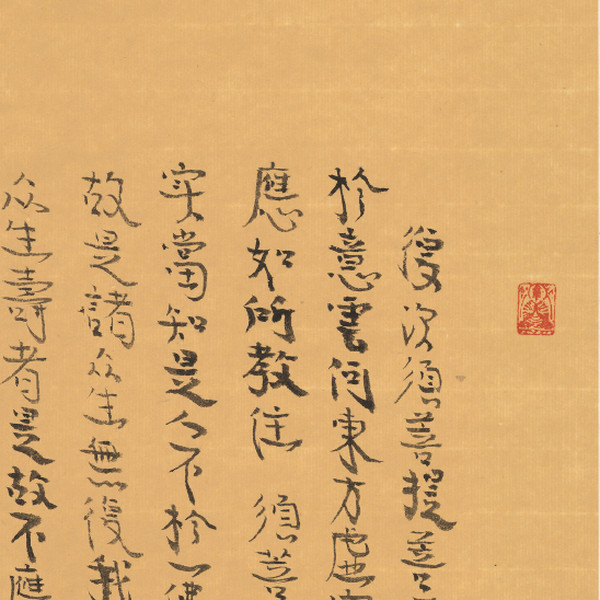 復次須菩提菩
於意雲何東方虛
應如所教住 須菩
実當知是人不於一佛
故是諸眾生無復我
众生壽者是故不應